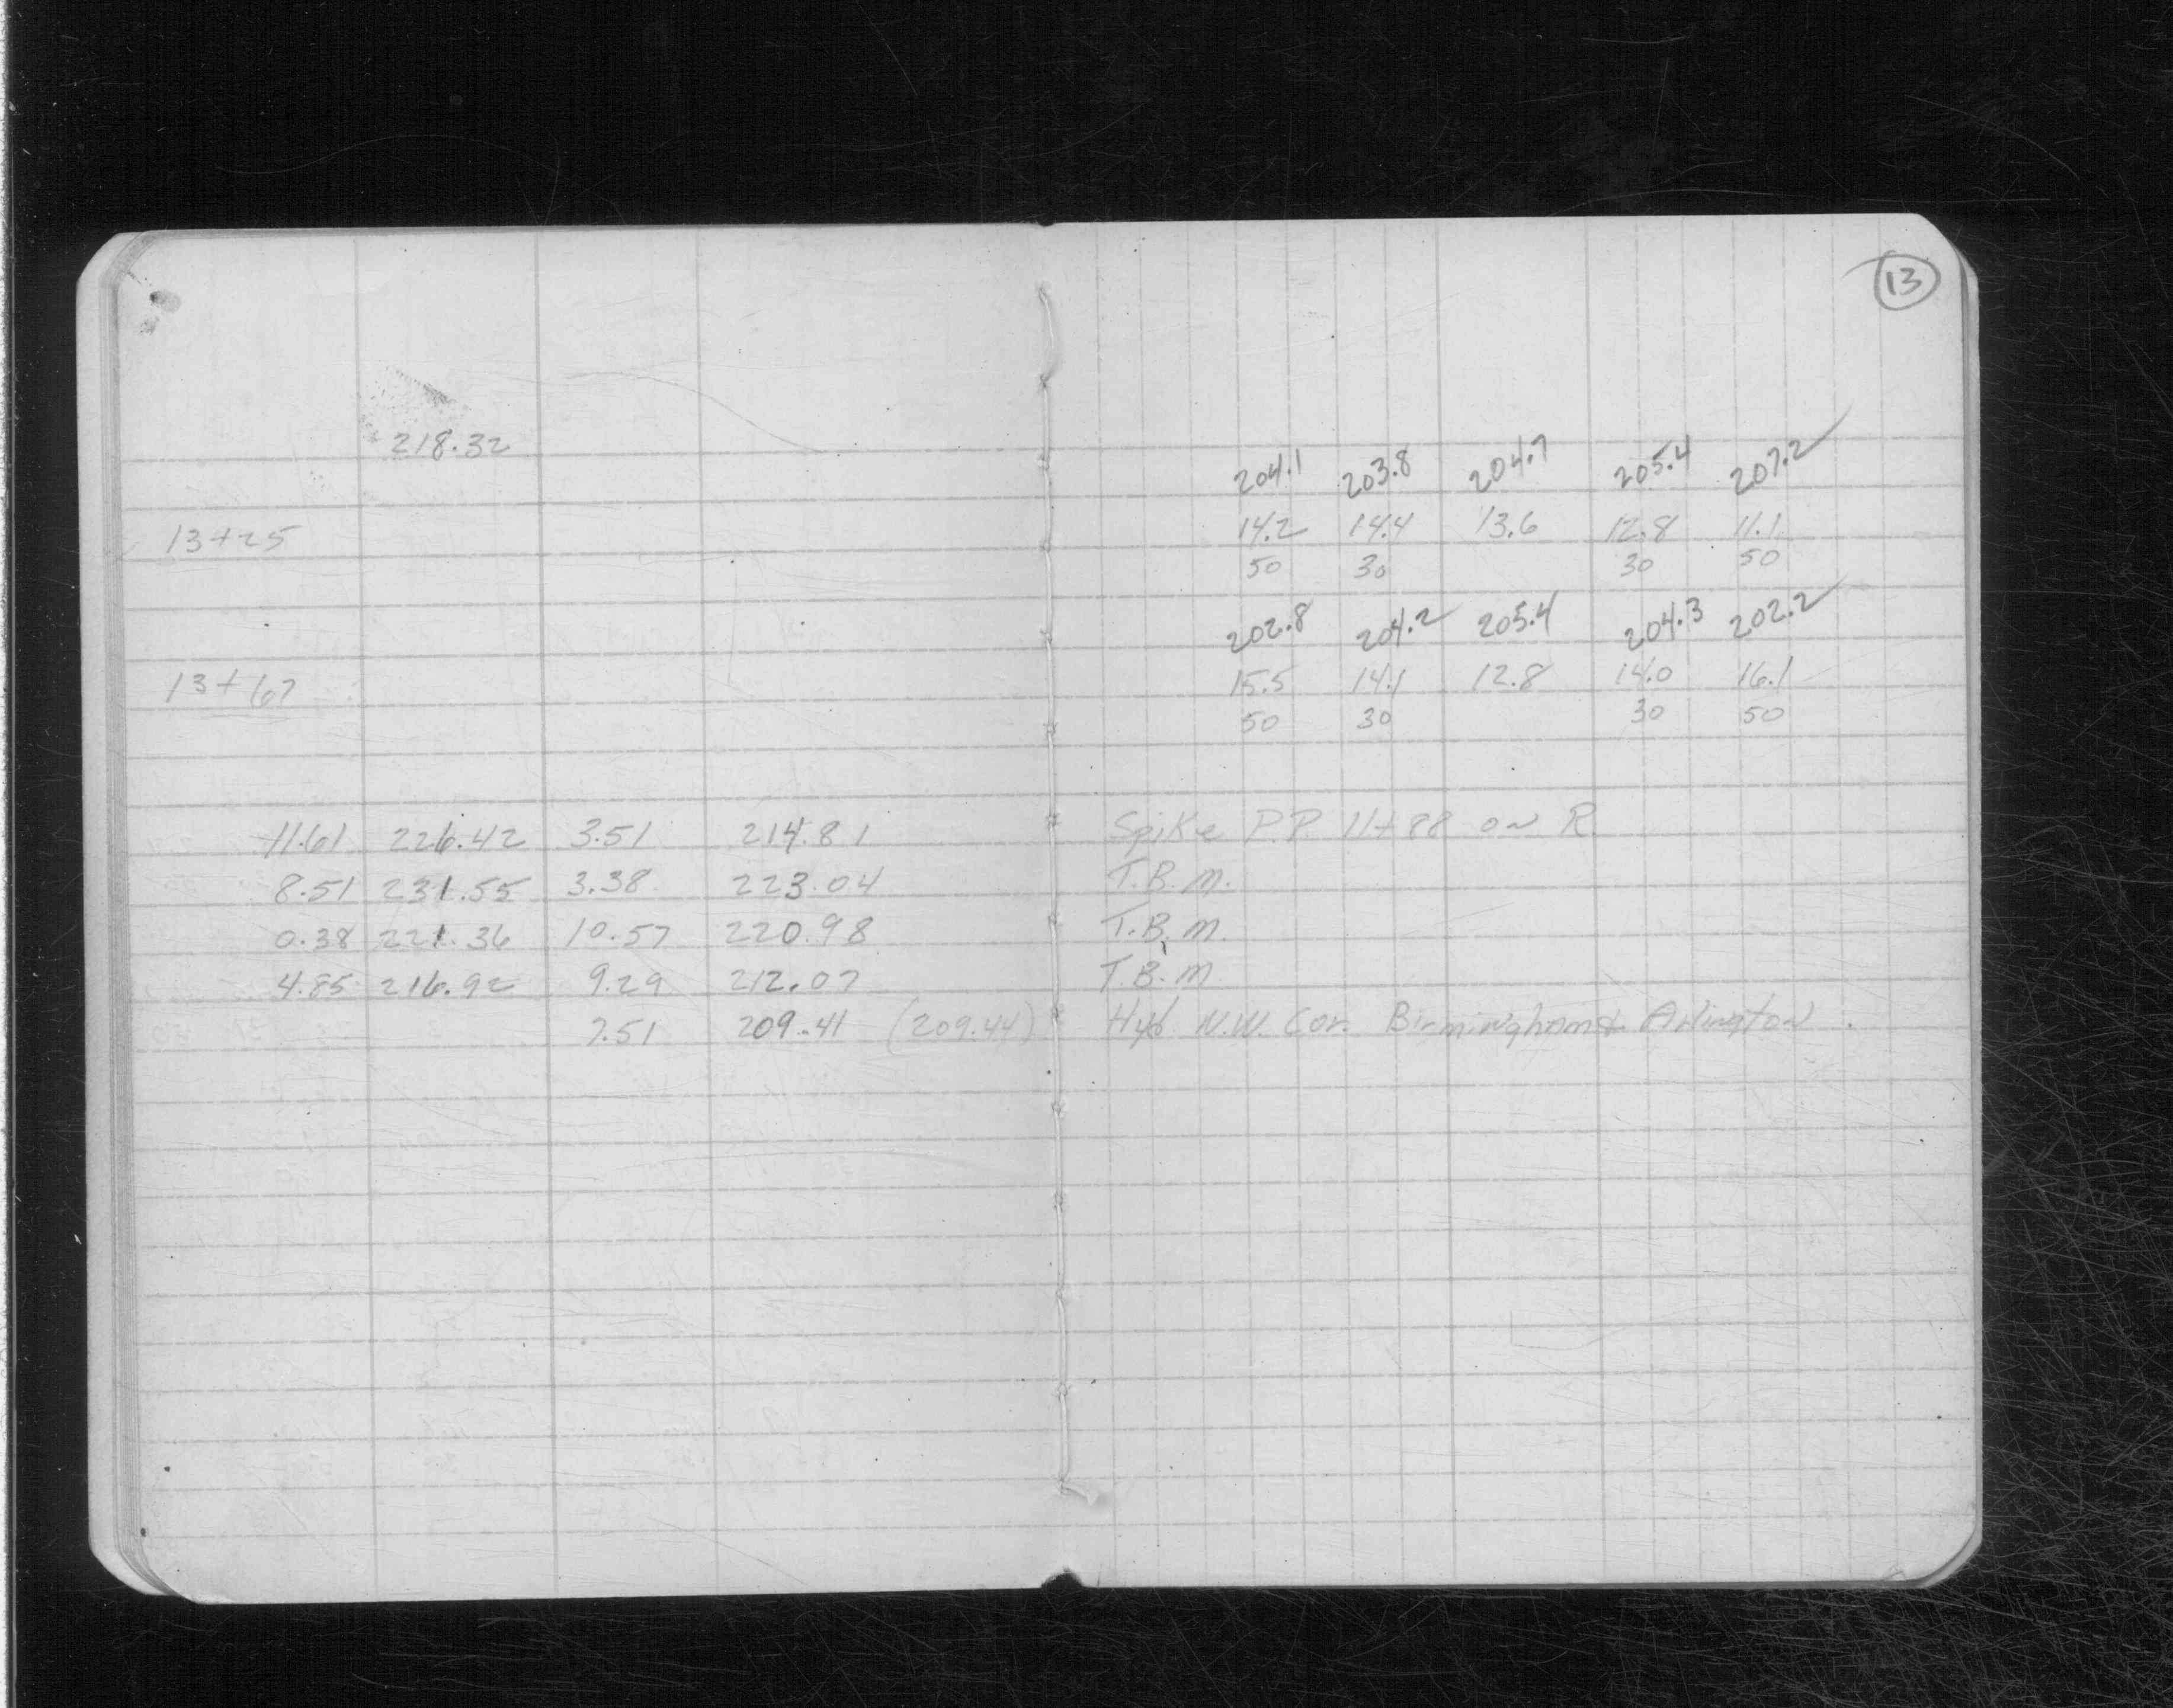 13
218.32
204.1 203.8 204.7 205.4 207.2
13+25 14.2 14.4 13.6 12.8 11.1
50 30 30 50
202.8 204.2 205.4 204.3 202.2
13+67 15.5 14.1 12.8 14.0 16.1
50 30 30 50
11.61 226.42 3.51 214.81 Spike P.P. 11+88 on R
8.51 231.55 3.38 223.04 T.B.M.
0.38 221.36 10.57 220.98 T.B.M.
4.85 216.92 9.29 212.07 T.B.M
7.51 209.41 (209.44) Hyd N.W. Cor. Birmingham & Arlington